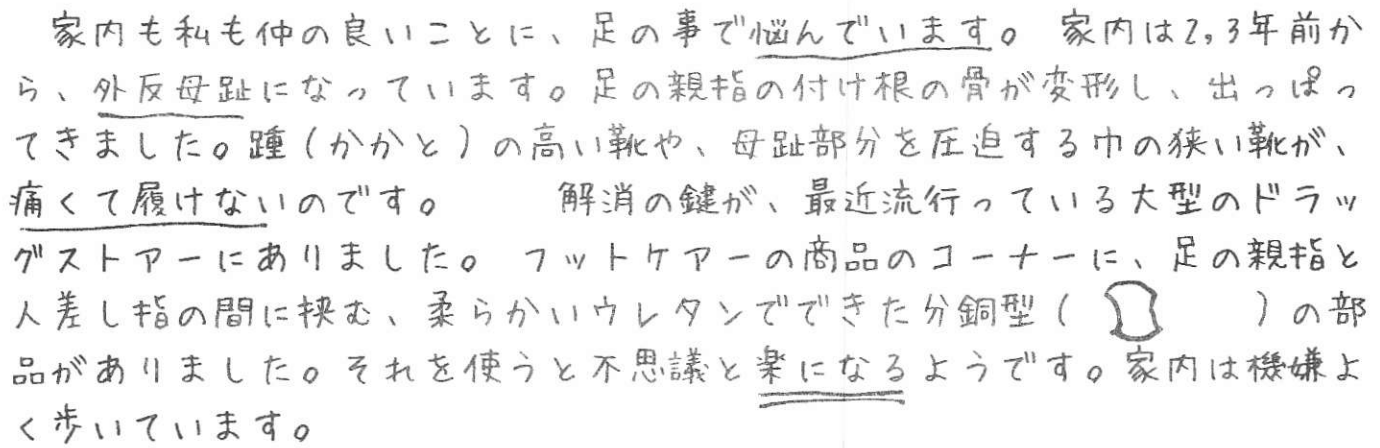 家内も私も仲の良いことに、足の事で悩んでいます。 家内は2,3年前か
ら、外反母趾になっています。足の親指の付け根の骨が変形し、出っぱっ
てきました。踵(かかと)の高い靴や、母趾部分を圧迫する巾の狭い靴が、
痛くて履けないのです。 解消の鍵が、最近流行っている大型のドラッ
グストアーにありました。 フットケアーの商品のコーナーに、足の親指と
人差し指の間に挟む、柔らかいウレタンでできた分銅型( )の部
品がありました。それを使うと不思議と楽になるようです。家内は機嫌よ
く歩いています。